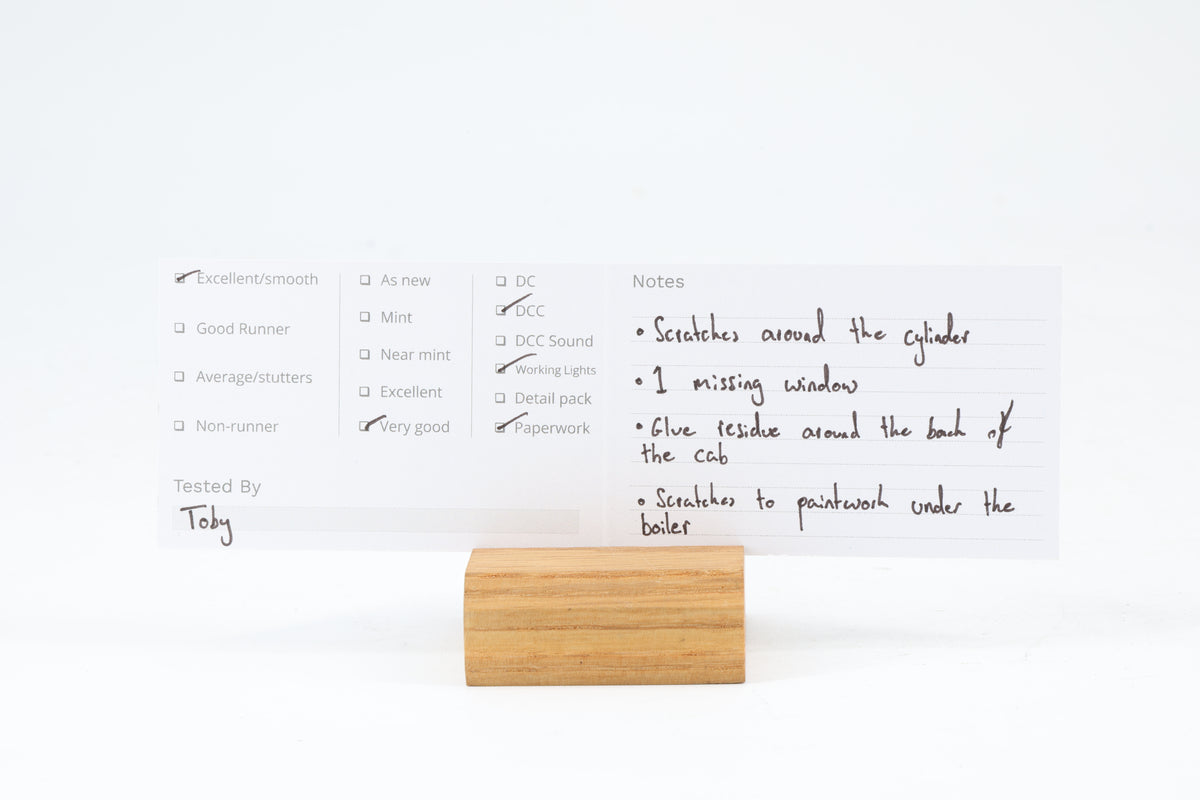 Excellent/smooth
Good Runner
Average/stutters
Non-runner
As new
Mint
Near mint
Excellent
Very good
DC
DCC
DCC Sound
Working Lights
Detail pack
Paperwork
Tested By
Toby
Notes
• Scratches around the cylinder
• 1 missing window
• Glue residue around the back of
the cab
• Scratches to paintwork under the
boiler